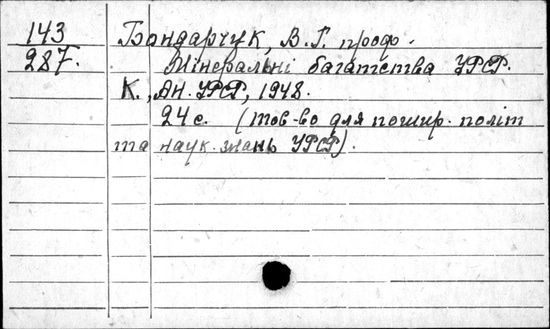 143 Бондарчук, В.Г. проф.
287. Мінеральні багатства УРСР.
К., АН. УРСР, 1948.
24 с. (тов-во для пошир. політ
та наук. знань УРСР).